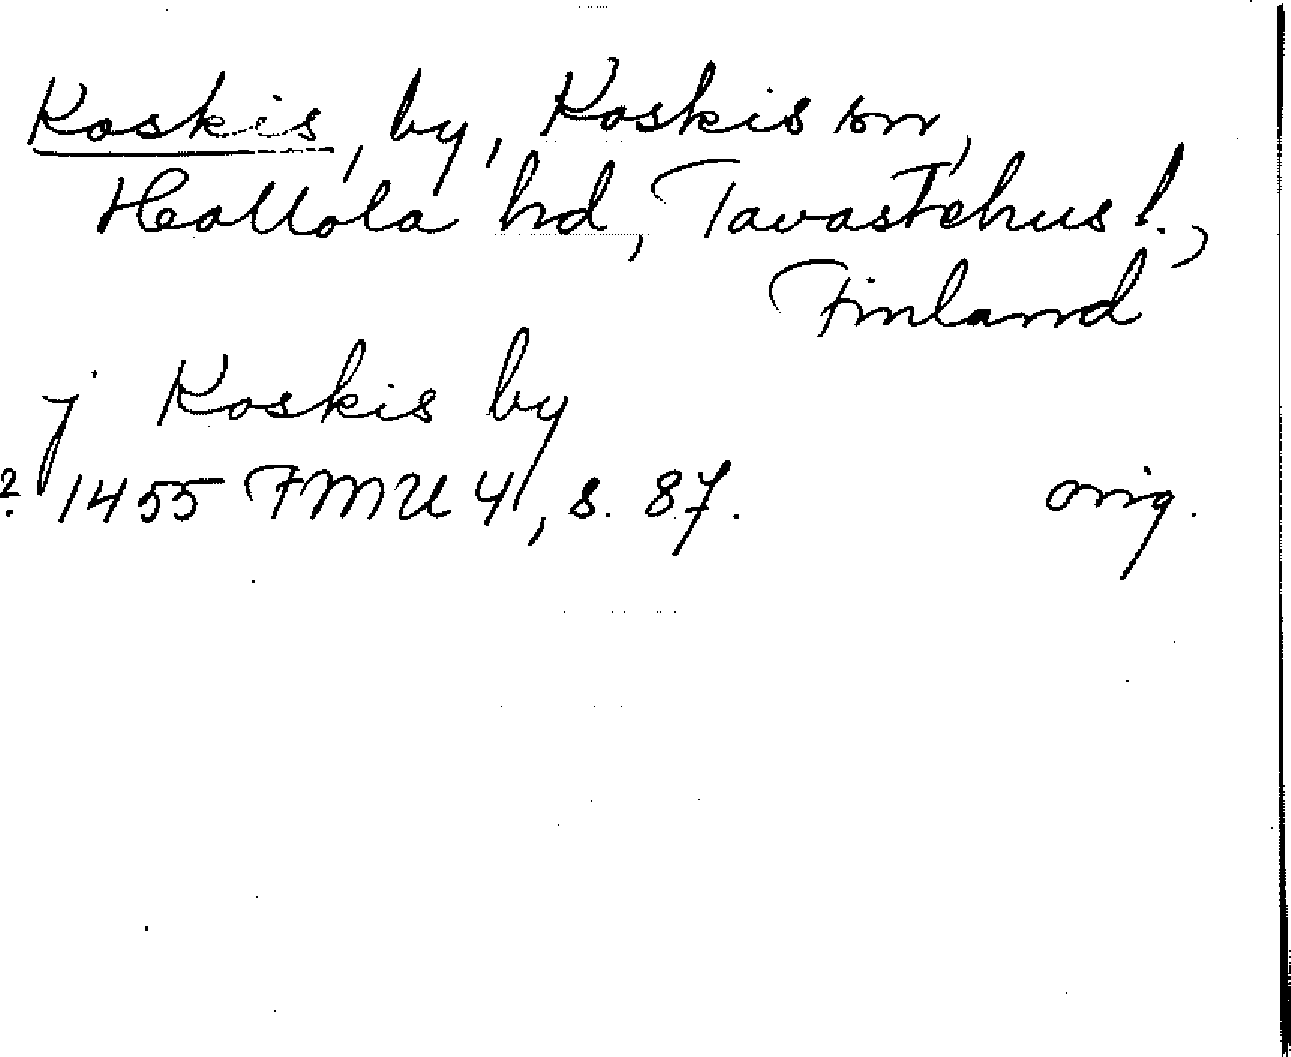 Koskis, by, Koskis sn,
Hollola hd, Tavastehus l.,
Finland
j Koskis by
? 1455 FMU 4, s. 87. orig.